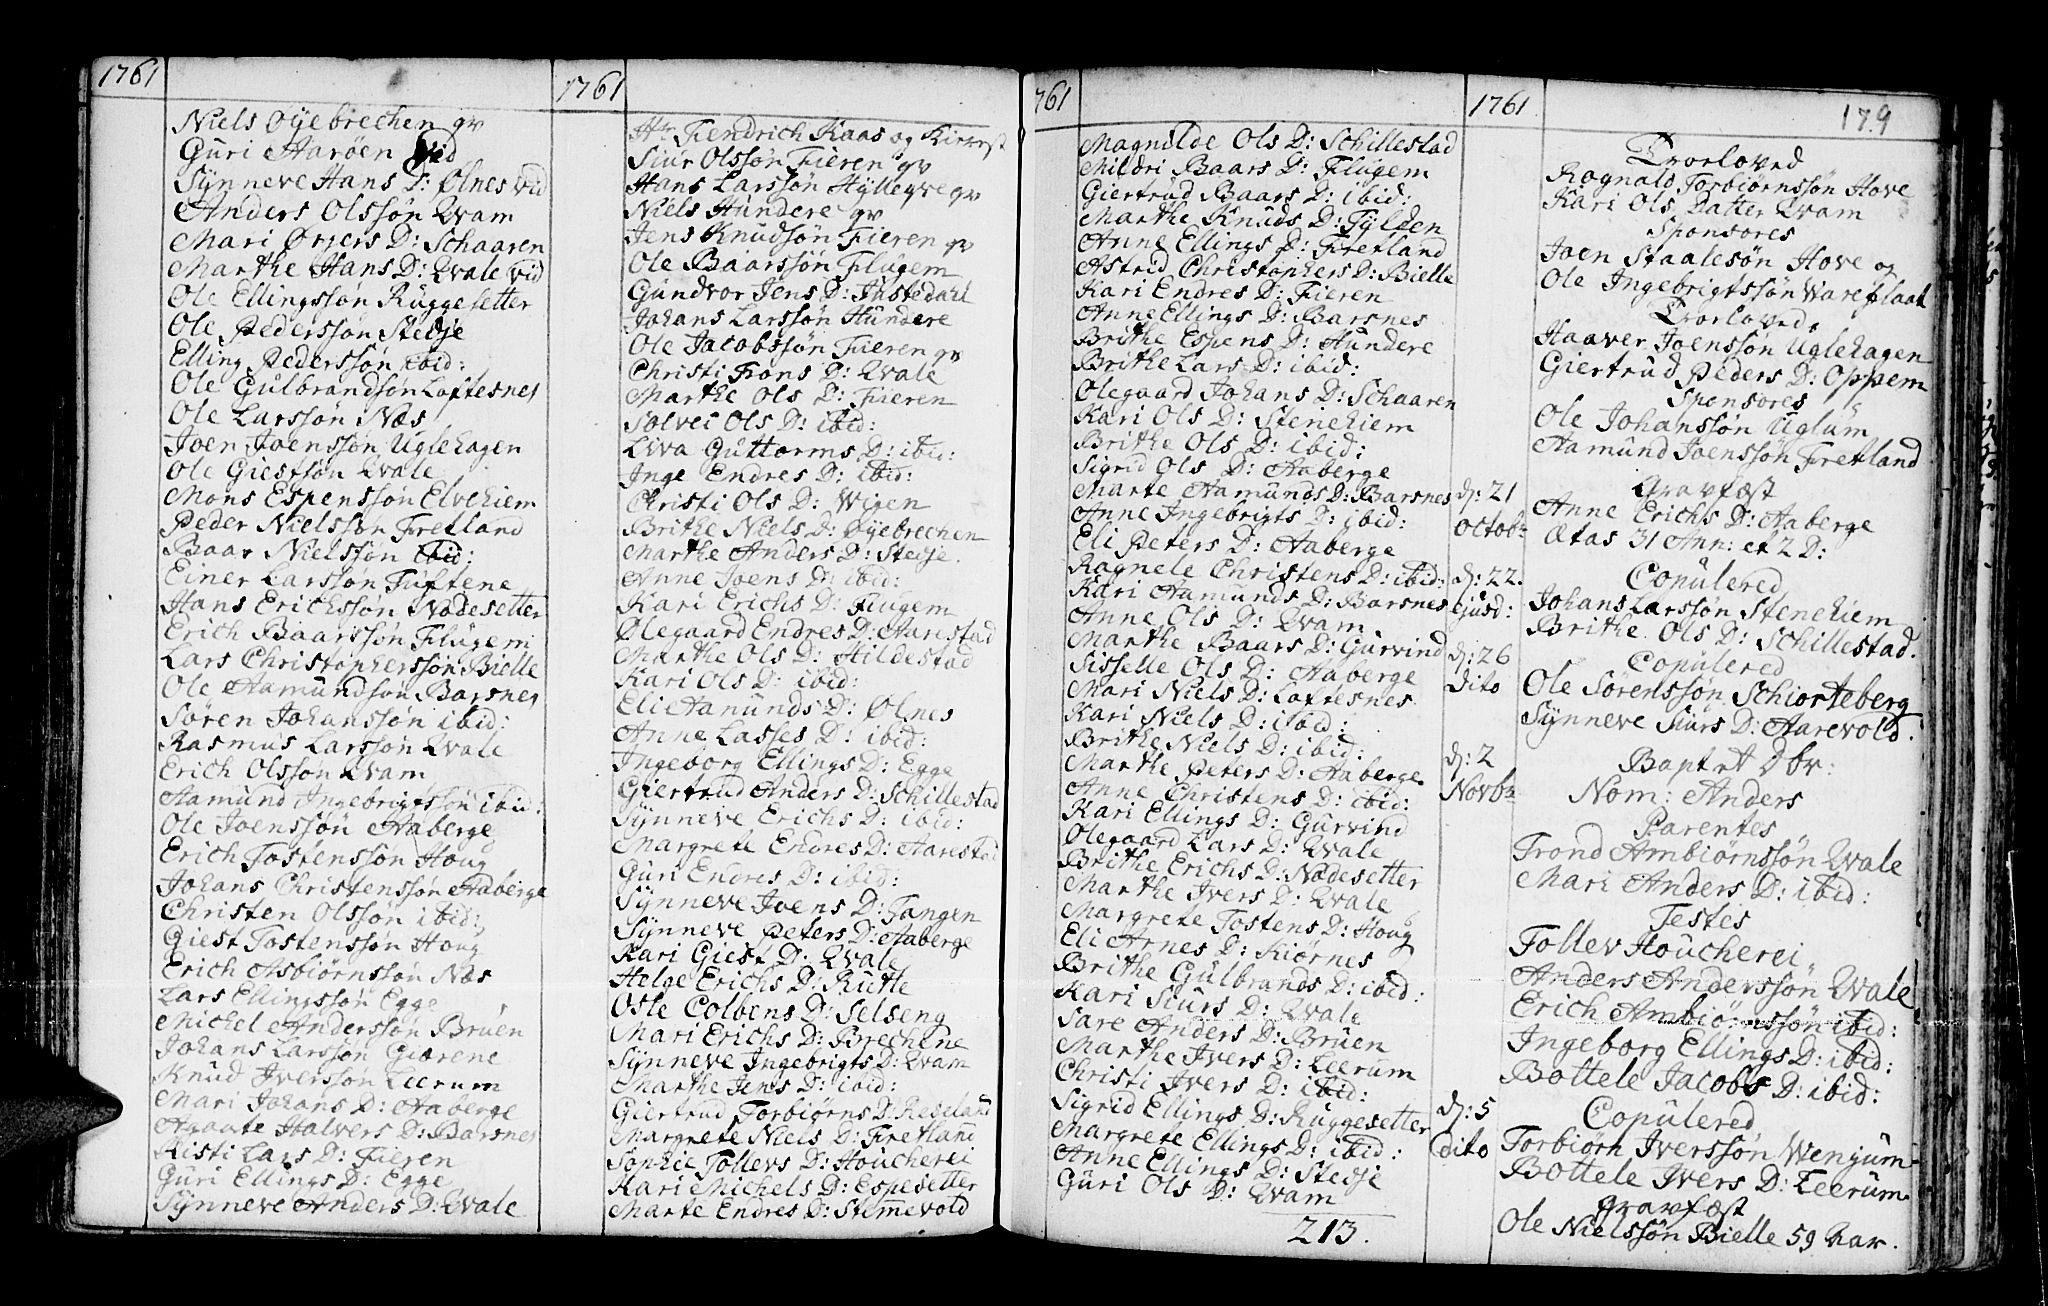 1761
Niels Øyebrechen qv
Guri Aarøen vid
Synneve Hans D: Ølnes vid
Anders Olssøn Qvam
Mari Ørjers D: Schaaren
Marthe Hans D: Qvale vid
Ole Ellingssøn Ruggesetter
Ole Pederssøn Stedje
Elling Pederssøn ibid:
Ole Gulbrandsøn Loftesnes
Ole Larssøn Næs
Joen Joenssøn Uglehagen
Ole Giestsøn Qvale
Mons Espenssøn Elvehiem
Peder Nielssøn Fretland
Baar Nielssøn ibid:
Einer Larssøn Tuftene
Hans Erichssøn Nødesetter
Erich Baarssøn Flugem
Lars Christopherssøn Bielle
Ole Aamundsøn Barsnes
Søren Johanssøn ibid:
Rasmus Larssøn Qvale
Erich Olssøn Qvam
Aamund Ingebrigtssøn ibid:
Ole Joenssøn Aaberge
Erich Tostenssøn Houg
Johans Christenssøn Aaberge
Christen Olssøn ibid:
Giest Tostenssøn Houg
Erich Asbiørnssøn Næs
Lars Ellingssøn Egge
Michel Anderssøn Bruen
Johans Larssøn Giørene
Knud Iverssøn Leerum
Mari Johans D: Aaberge
Agaate Halvers D: Barsnes
Kisti Lars D: Fieren
Guri Ellings D: Egge
Synneve Anders D: Qvale
1761
Hr. Hendrich Kaas og Kiereste
Siur Olssøn Fieren qv
Hans Larssøn Hyllegve qv
Niels Hundere qv
Jens Knudsøn Fieren qv
Ole Baarssøn Flugem
Gundvor Jens D: Justedahl
Johans Larssøn Hundere
Ole Jacobssøn Fieren qv
Christi Frons D: Qvale
Marthe Ols D: Fieren
Solvei Ols D: ibid:
Liva Guttorms D: ibid:
Inge Endres D: ibid:
Christi Ols D: Wigen
Brithe Niels D: Øyebrechen
Marthe Anders D: Stedje
Anne Joens D: ibid:
Kari Erichs D: Flugem
Ølegaard Endres D: Aarestad
Marthe Ols D: Hildestad
Kari Ols D: ibid:
Eli Aamunds D: Ølnes
Anne Lasses D: ibid:
Ingeborg Ellings D: Egge
Giertrud Anders D: Schillestad
Synneve Erichs D: ibid:
Margrete Endres D: Aarestad
Guri Endres D: ibid:
Synneve Joens D: Tangen
Synneve Peters D: Aaberge
Kari Giest D: Qvale
Helge Erichs D: Rutle
Osle Colbens D: Selseng
Mari Erichs D: Brechene
Synneve Ingebrigts D: Qvam
Marthe Jens D: ibid:
Giertrud Torbiørns D: Reseland
Margrete Niels D: Fretland
Sophie Tollevs D: Houcherei
Kari Michels D: Espesetter
Marte Endres D: Stemevold
761
Magnilde Ols D: Schillestad
Mildri Baars D: Flugem
Giertrud Baars D: ibid:
Marthe Knuds D: Fylden
Anne Ellings D: Fretland
Astrid Christophers D: Bielle
Kari Endres D: Fieren
Anne Ellings D: Barsnes
Brithe Espens D: Hundere
Brithe Lars D: ibid:
Olegaard Johans D: Schaaren
Kari Ols D: Stenehiem
Brithe Ols D: ibid:
Sigrid Ols D: Aaberge
Marte Aamunds D: Barsnes
Anne Ingebrigts D: ibid:
Eli Peters D: Aaberge
Ragnele Christens D: ibid:
Kari Aamunds D: Barsnes
Anne Ols D: Qvam
Marthe Baars D: Gurvind
Sisselle Ols D: Aaberge
Mari Niels D: Loftesnes
Kari Niels D: ibid:
Brithe Niels D: ibid:
Marthe Peters D: Aaberge
Anne Christens D: ibid:
Kari Ellings D: Gurvind
Olegaard Lars D: Qvale
Brithe Erichs D: Nødesetter
Marthe Ivers D: Qvale
Margrete Tostens D: Houg
Eli Arnes D: Kiørnes
Brithe Gulbrands D: ibid:
Kari Siurs D: Qvale
Sare Anders D: Bruen
Marthe Ivers D: Leerum
Christi Ivers D: ibid:
Sigrid Ellings D: Ruggesetter
Margrete Ellings D: ibid:
Anne Ellings D: Stedje
Guri Ols D: Qvam
213.
1761
179
Trorloved
Rognald Torbiørnssøn Hove
Kari Ols Datter Qvam
Sponsores
Joen Staalesøn Hove og
Ole Ingebrigtssøn Wareplaat
Trorloved
Haaver Joenssøn Uglehagen
Giertrud Peders D: Oppem
Sponsores
Ole Johanssøn Uglum
Aamund Joenssøn Fretland
d: 21 Octobr
Gravfæst
Anne Erichs D: Aaberge
Ætas 31 Ann: et 2 D:
d: 22. ejusd:
Copulered
Johans Larssøn Stenehiem
Brithe Ols D: Schillestad.
d: 26 dito
Copulered
Ole Sørenssøn Schiorteberg
Synneve Siurs D: Aarevold.
d: 2 Novbr
Bapt et Obr:
Nom: Anders
Parentes
Trond Ambiørnssøn Qvale
Mari Anders D: ibid:
Testes
Tollev Houcherei
Anders Anderssøn Qvale
Erich Ambiørnssøn ibid:
Ingeborg Ellings D: ibid:
Bottele Jacobs D: ibid:
d: 5 dito
Copulered
Torbiørn Iverssøn Wenjum
Bottele Ivers D: Leerum
Gravfæst
Ole Nielssøn Bielle 59 Aar.